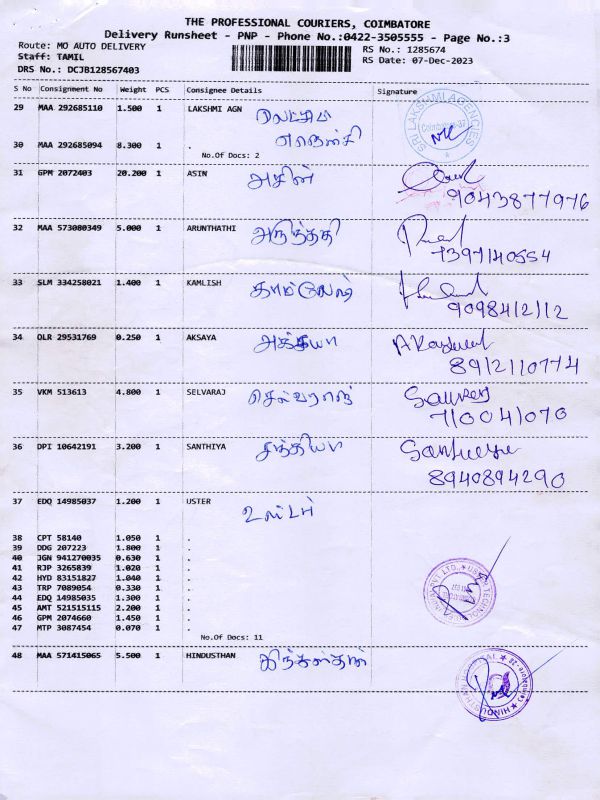 THE PROFESSIONAL COURIERS, COIMBATORE
Delivery Runsheet - PNP - Phone No.:0422-3505555 - Page No.:3
Route: MO AUTO DELIVERY
Staff: TAMIL
DRS No.: DCJB128567403
RS No.: 1285674
RS Date: 07-Dec-2023
S No Consignment No Weight PCS Consignee Details Signature
29 MAA 292685110 1.500 1 LAKSHMI AGN லட்சுமி
SRI LAKSHMI AGENCIES
Coimbatore-37
30 MAA 292685094 8.300 1 . ஏஜென்சி
No.Of Docs: 2
31 GPM 2072403 20.200 1 ASIN அசின்
9043877976
32 MAA 573080349 5.000 1 ARUNTHATHI அருந்ததி
7397140554
33 SLM 334258021 1.400 1 KAMLISH காம்லேஷ்
9098412112
34 OLR 29531769 0.250 1 AKSAYA அக்சயா
8912110774
35 VKM 513613 4.800 1 SELVARAJ செல்வராஜ்
710041070
36 DPI 10642191 3.200 1 SANTHIYA சந்தியா
8940894290
37 EDQ 14985037 1.200 1 USTER உஸ்டர்
38 CPT 58140 1.050 1 .
39 DDG 207223 1.800 1 .
40 JGN 941270035 0.630 1 .
41 RJP 3265839 1.020 1 .
42 HYD 83151827 1.040 1 .
43 TRP 7089054 0.330 1 .
44 EDQ 14985035 1.300 1 .
45 AMT 521515115 2.200 1 .
46 GPM 2074660 1.450 1 .
47 MTP 3087454 0.070 1 .
No.Of Docs: 11
48 MAA 571415065 5.500 1 HINDUSTHAN ஹிந்துஸ்தான்